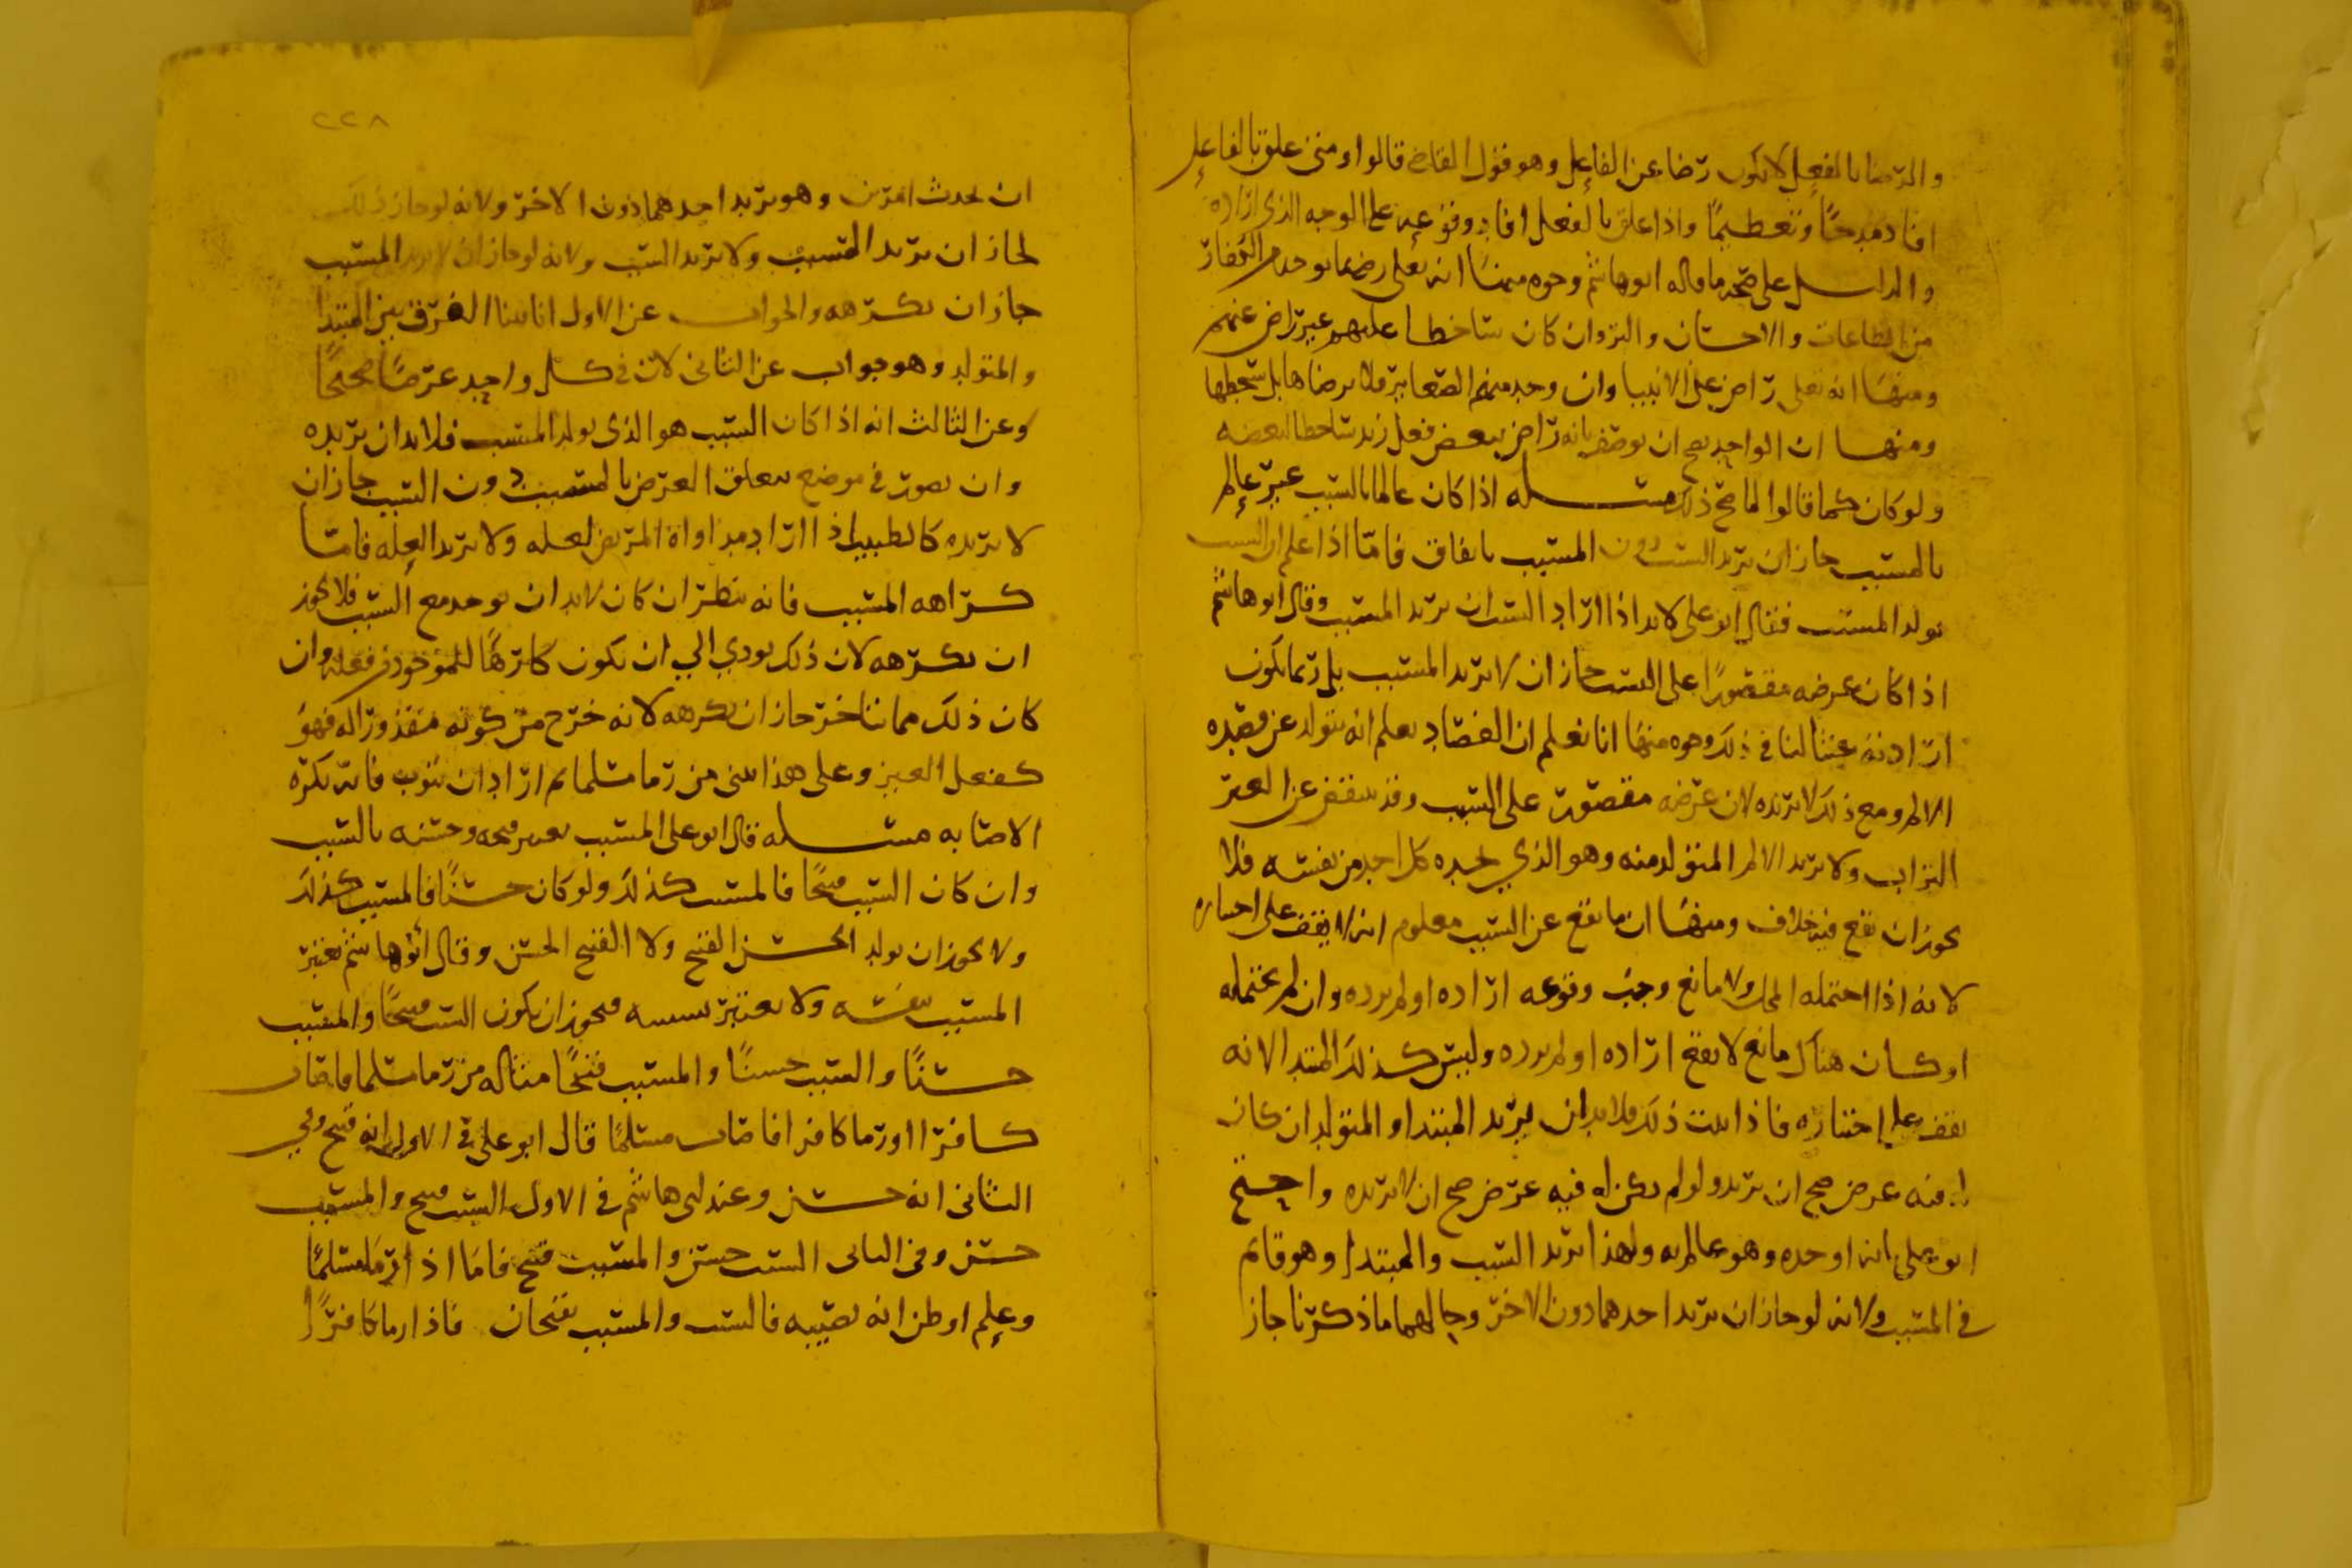 والرضا بالفعل لا يكون رضا عن الفاعل وهو قول القاضي قالوا ومتى علق بالفاعل
افاد مدحًا وتعظيمًا واذا علق بالفعل افاد وقوعه على الوجه الذي اراده
والدليل على صحة ما قاله ابو هاشم وجوه منها انه تعالى رضي بما يوجد من الكفار
من الطاعات والاحسان والبر وان كان ساخطا عليهم غير راض عنهم
ومنها انه تعالى راض على الانبيا وان وجد منهم الصغاير فلا يرضاها بل يسخطها
ومنها ان الواحد يصح ان يوصف بانه راض ببعض فعل زيد ساخطا لبعضه
ولو كان كما قالوا لما صح ذلك مسله اذا كان عالما بالسبب غير عالم
بالمسبب جاز ان يريد السبب دون المسبب باتفاق فامّا اذا علم ان السبب
يولد المسبب فقال ابو على لا بد اذا اراد السبب ان يريد المسبب وقال ابو هاشم
اذا كان غرضه مقصورًا على السبب جاز ان لا يريد المسبب بل ربما يكون
لنا في ذلك وجوه منها انا نعلم ان الفصاد يعلم انه يتولد عن فصده
الالم ومع ذلك لا يريده لان غرضه مقصور على السبب وقد ينفض عن
التراب ولا يريد الالم المتولد منه وهو الذي يجده كل احد من نفسه فلا
يجوز ان يقع فيه خلاف ومنها ان ما يقع عن السبب معلوم انه لا يقف على اختياره
لانه اذا احتمله المحل ولا مانع وجب وقوعه اراده او لم يرده وان لم يحتمله
او كان هناك مانع لا يقع اراده او لم يرده وليس كذلك المبتدا لانه
يقف على اختياره فاذا ثبت ذلك فلا بد ان يريد المبتدا والمتولد ان كان
له فيه غرض صح ان يريد ولو لم يكن له فيه غرض صح ان لا يريده واحتج
ابو على بانه اوجده وهو عالم به ولهذا يريد السبب والمبتدا وهو قائم
في المسبب ولانه لو جاز ان يريد احدهما دون الاخر وحالهما ما ذكرنا جاز
٢٢٨
ان يحدث امرين وهو يريد احدهما دون الاخر ولانه لو جاز ذلك
لجاز ان يريد المسبب ولا يريد السبب ولانه لو جاز ان لا يريد المسبب
جاز ان يكرهه والجواب عن الاول انا بينا الفرق بين المبتدا
والمتولد وهو جواب عن الثاني لان في كل واحد غرضًا صحيحًا
وعن الثالث انه اذا كان السبب هو الذي يولد المسبب فلا بد ان يريده
وان صور في موضع يتعلق الغرض بالمسبب دون السبب جاز ان
لا يريده كالطبيب اذا اراد مداواة المريض لعله ولا يريد العله فامّا
كراهه المسبب فانه ينظر ان كان لا بد ان يوجد مع السبب فلا يجوز
ان يكرهه لان ذلك يودي الي ان يكون كارهًا للموجود من فعله وان
كان ذلك مما يتاخر جاز ان يكرهه لانه خرج من كونه مقدورا له فهو
كفعل الغير وعلى هذا من رما مسلما ثم اراد ان يتوب فانه يكره
الاصابه مسله قال ابو على المسبب يعتبر قبحه وحسنه بالسبب
وان كان السبب قبيحًا فالمسبب كذلك ولو كان حسنًا فالمسبب كذلك
ولا يجوز ان يولد الحسن القبيح ولا القبيح الحسن وقال ابو هاشم يعتبر
المسبب بنفسه ولا يعتبر بسببه فيجوز ان يكون السبب قبيحًا والمسبب
حسنًا والسبب حسنًا والمسبب قبيحًا مثاله من رما مسلما فاصاب
كافرا او رما كافرا فاصاب مسلمًا قال ابو على في الاول انه قبيح وفي
الثاني انه حسن وعند ابي هاشم في الاول السبب قبيح والمسبب
حسن وفي الثاني السبب حسن والمسبب قبيح فامّا اذا رما مسلمًا
وعلم او ظن انه يصيبه فالسبب والمسبب يقبحان فاذا رما كافرًا